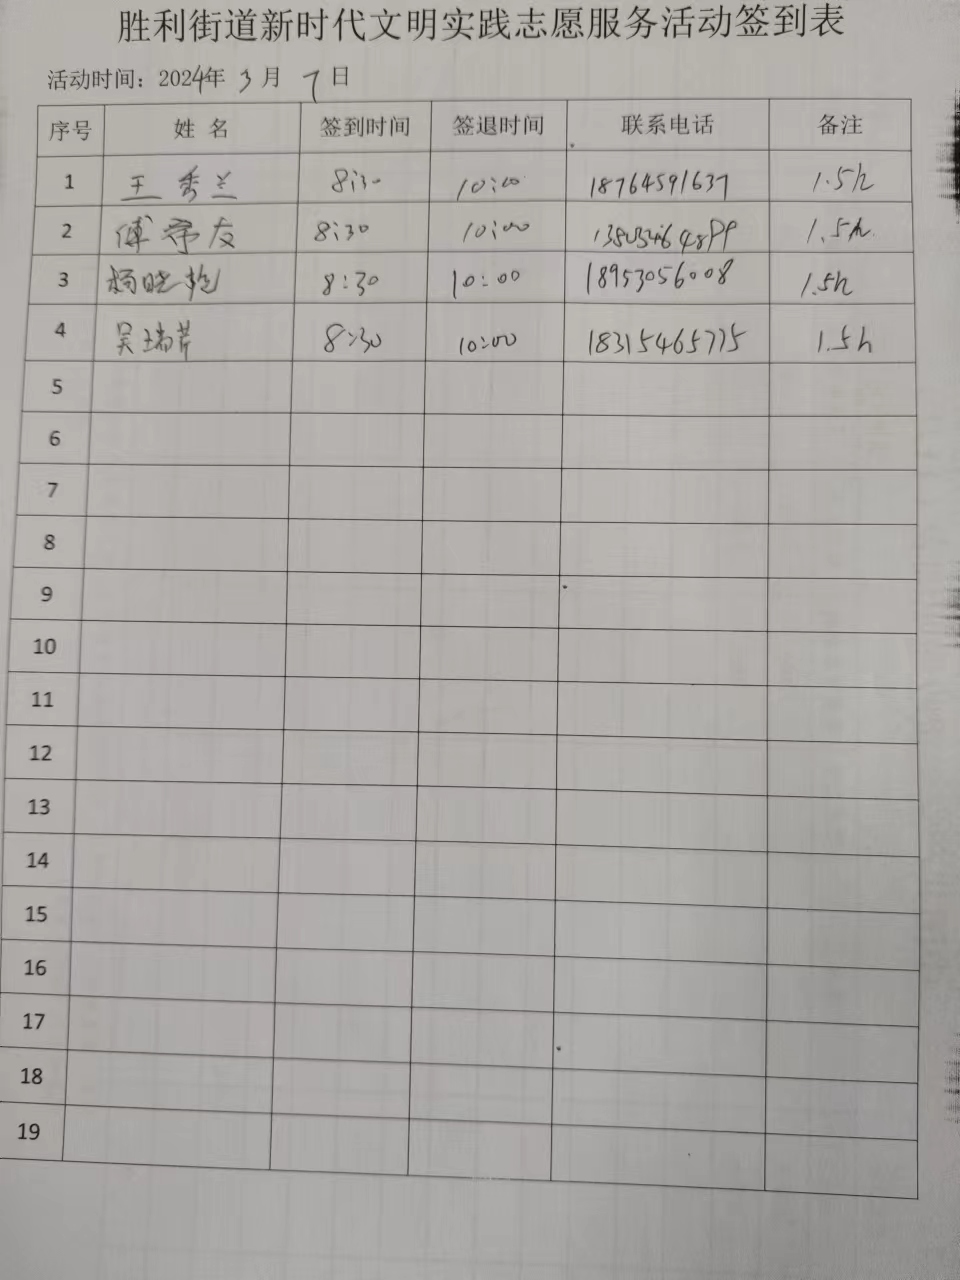 胜利街道新时代文明实践志愿服务活动签到表
活动时间：2024年 3月 7日
序号 姓 名 签到时间 签退时间 联系电话 备注
1 王秀兰 8:30 10:00 18764591637 1.5h
2 傅 友 8:30 10:00 1.5h
3 杨晓艳 8:30 10:00 18953056008 1.5h
4 吴瑞芹 8:30 10:00 18315465775 1.5h
5
6
7
8
9
10
11
12
13
14
15
16
17
18
19